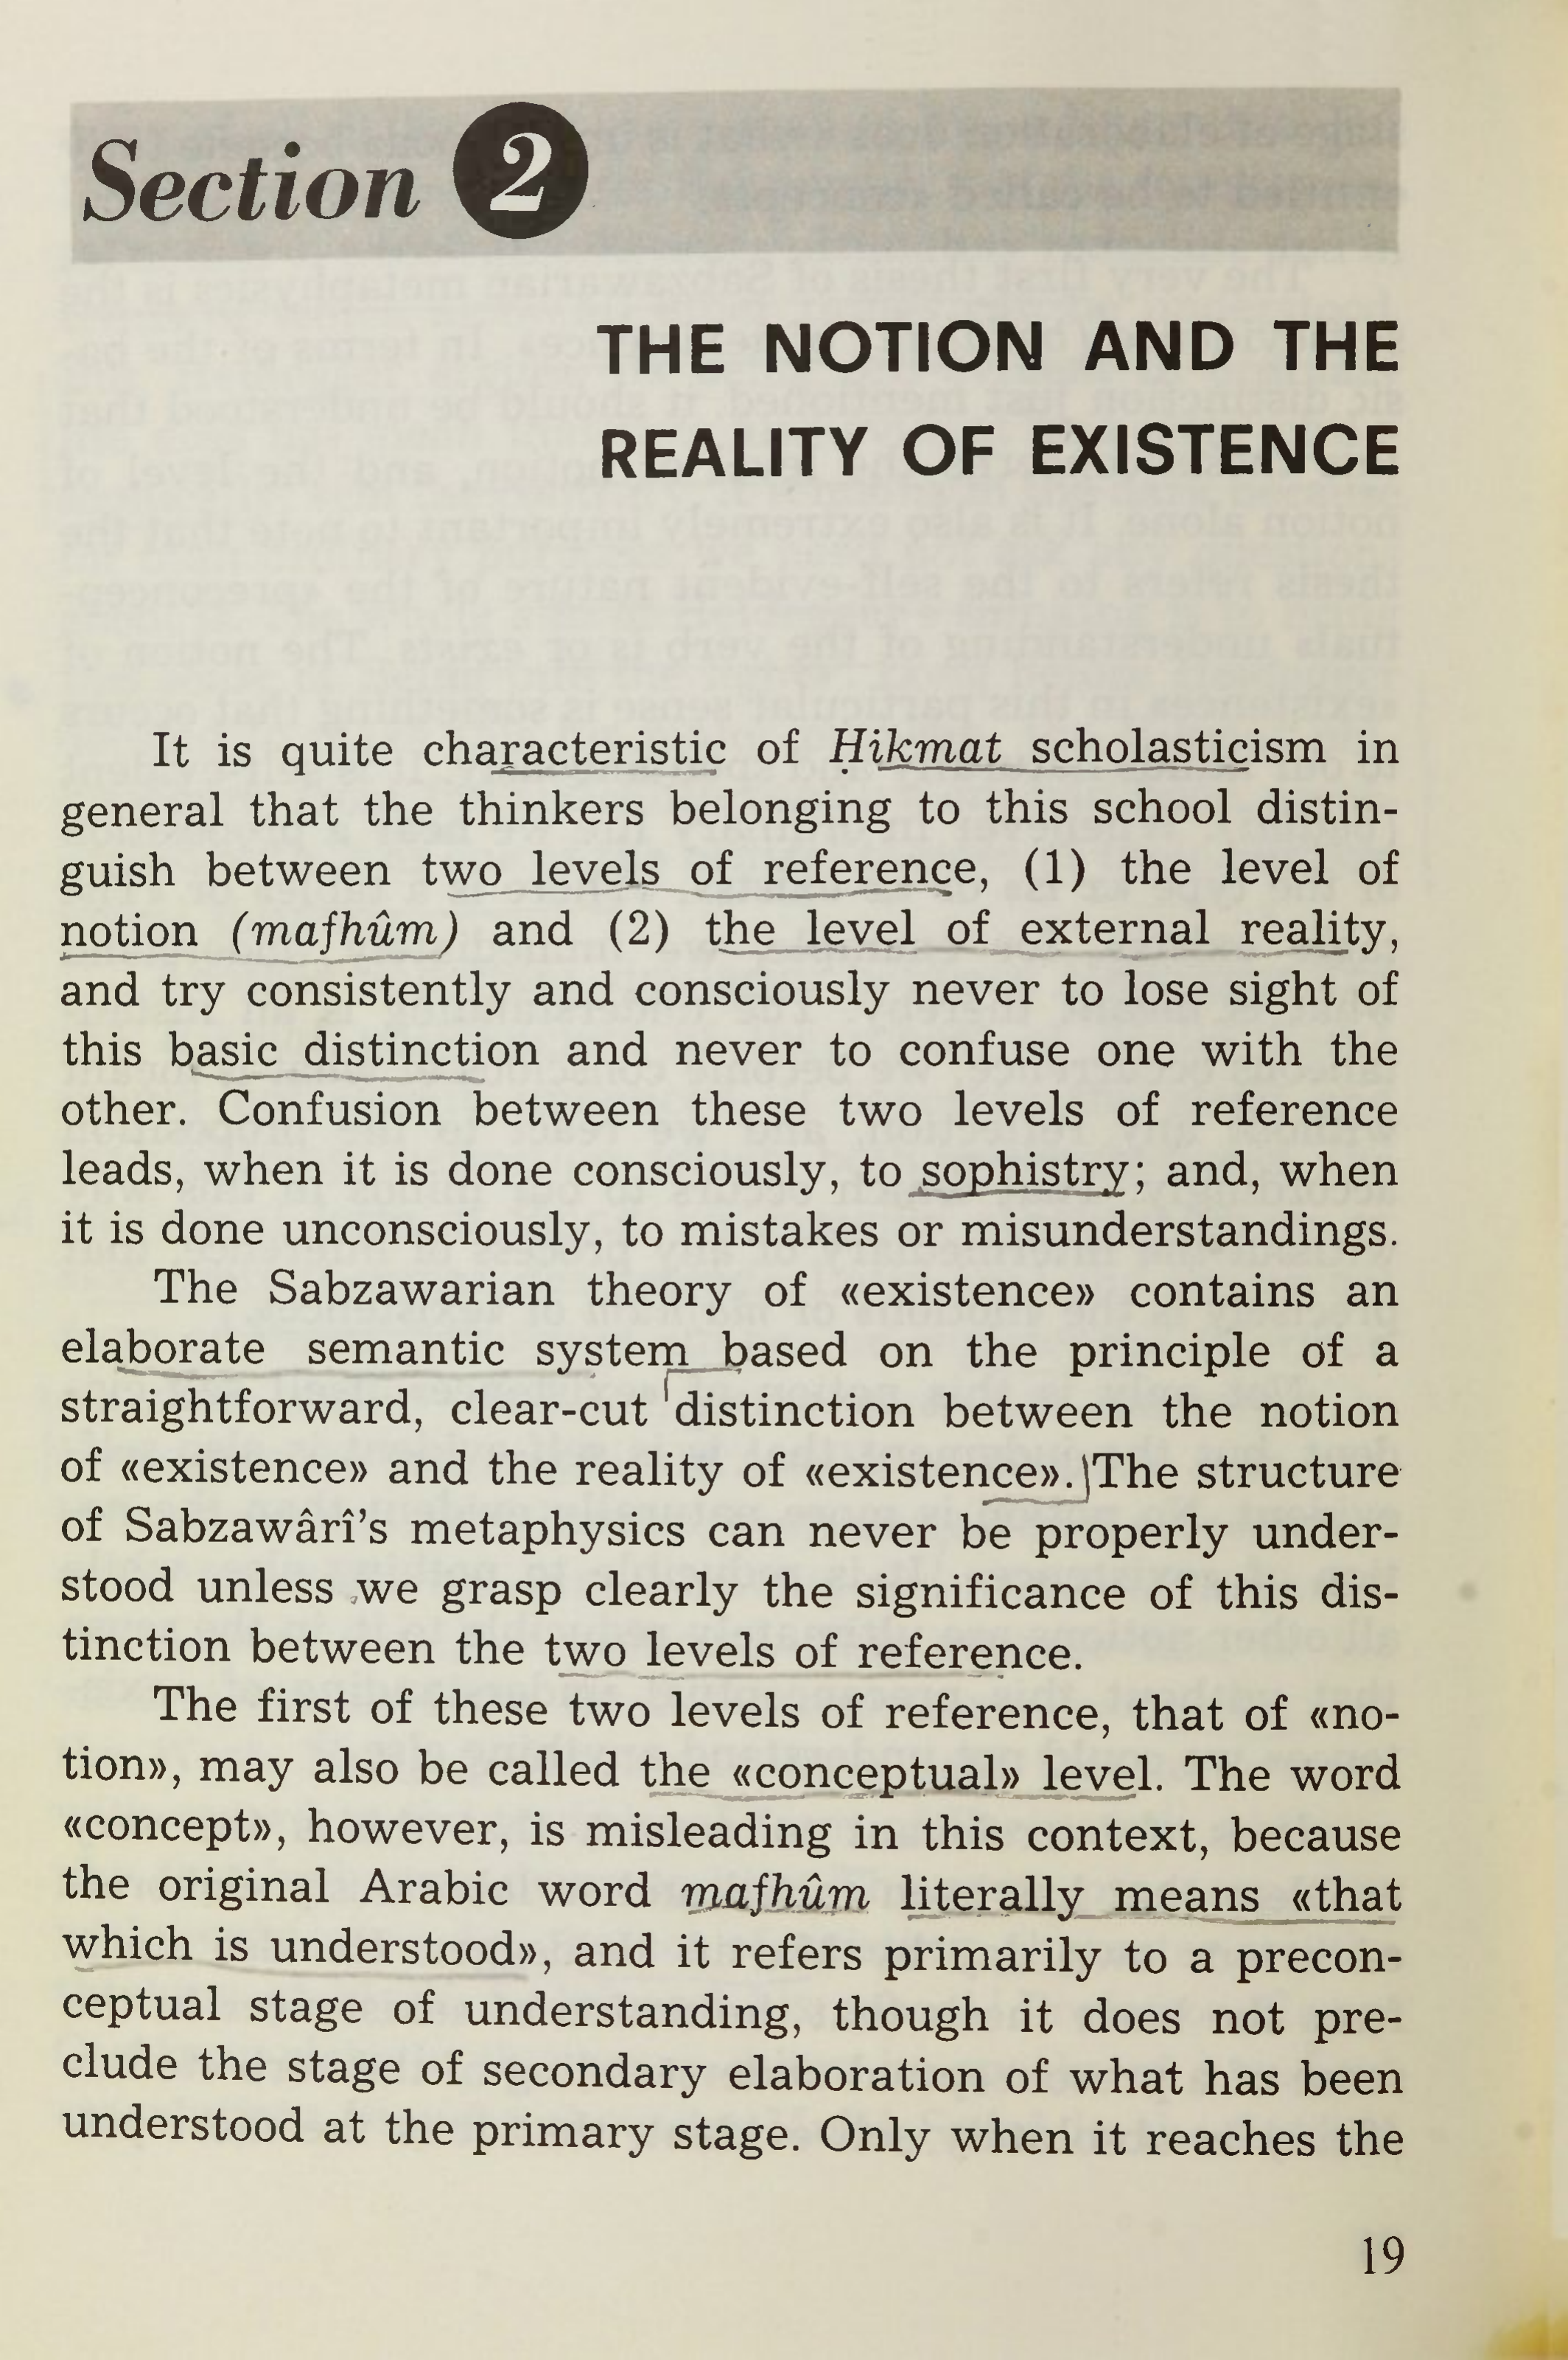 Section 2
THE NOTION AND THE
REALITY OF EXISTENCE
It is quite characteristic of Ḥikmat scholasticism in
general that the thinkers belonging to this school distin-
guish between two levels of reference, (1) the level of
notion (mafhûm) and (2) the level of external reality,
and try consistently and consciously never to lose sight of
this basic distinction and never to confuse one with the
other. Confusion between these two levels of reference
leads, when it is done consciously, to sophistry; and, when
it is done unconsciously, to mistakes or misunderstandings.
The Sabzawarian theory of «existence» contains an
elaborate semantic system based on the principle of a
straightforward, clear-cut distinction between the notion
of «existence» and the reality of «existence». The structure
of Sabzawârî's metaphysics can never be properly under-
stood unless we grasp clearly the significance of this dis-
tinction between the two levels of reference.
The first of these two levels of reference, that of «no-
tion», may also be called the «conceptual» level. The word
«concept», however, is misleading in this context, because
the original Arabic word mafhûm literally means «that
which is understood», and it refers primarily to a precon-
ceptual stage of understanding, though it does not pre-
clude the stage of secondary elaboration of what has been
understood at the primary stage. Only when it reaches the
19